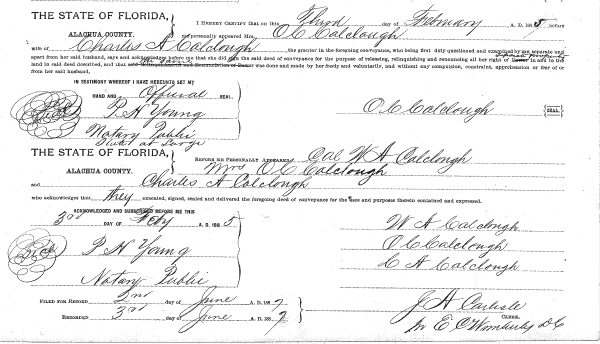 THE STATE OF FLORIDA,
ALACHUA COUNTY.
I HEREBY CERTIFY That on this Third day of February A. D. 1885 before
me personally appeared Mrs. O C Calclough
wife of Charles A Calclough the grantor in the foregoing conveyance, who being first duly questioned and examined by me separate and
apart from her said husband, says and acknowledges before me that she did sign the said deed of conveyance for the purpose of releasing, relinquishing and renouncing all her right of Dower in and to the
land in said deed described, and that said Relinquishment and Renunciation of Dower was done and made by her freely and voluntarily, and without any compulsion, constraint, apprehension or fear of or
from her said husband,
IN TESTIMONY WHEREOF I HAVE HEREUNTO SET MY
HAND AND Official SEAL,
P H Young
Notary Public
State at Large
O C Calclough {SEAL}
THE STATE OF FLORIDA,
ALACHUA COUNTY.
BEFORE ME PERSONALLY APPEARED Cal W A Calclough
Mrs O C Calclough
and Charles A Calclough
who acknowledged that they executed, signed, sealed and delivered the foregoing deed of conveyance for the uses and purposes therein contained and expressed.
ACKNOWLEDGED AND SUBSCRIBED BEFORE ME THIS
3rd DAY OF Feby A. D. 1885
P H Young
Notary Public
W A Calclough
O C Calclough
C A Calclough
FILED FOR RECORD 2nd day of June A. D., 1887
RECORDED 3rd day of June A. D., 1887
J A Carlisle
CLERK.
Pr E C Wimberly D C